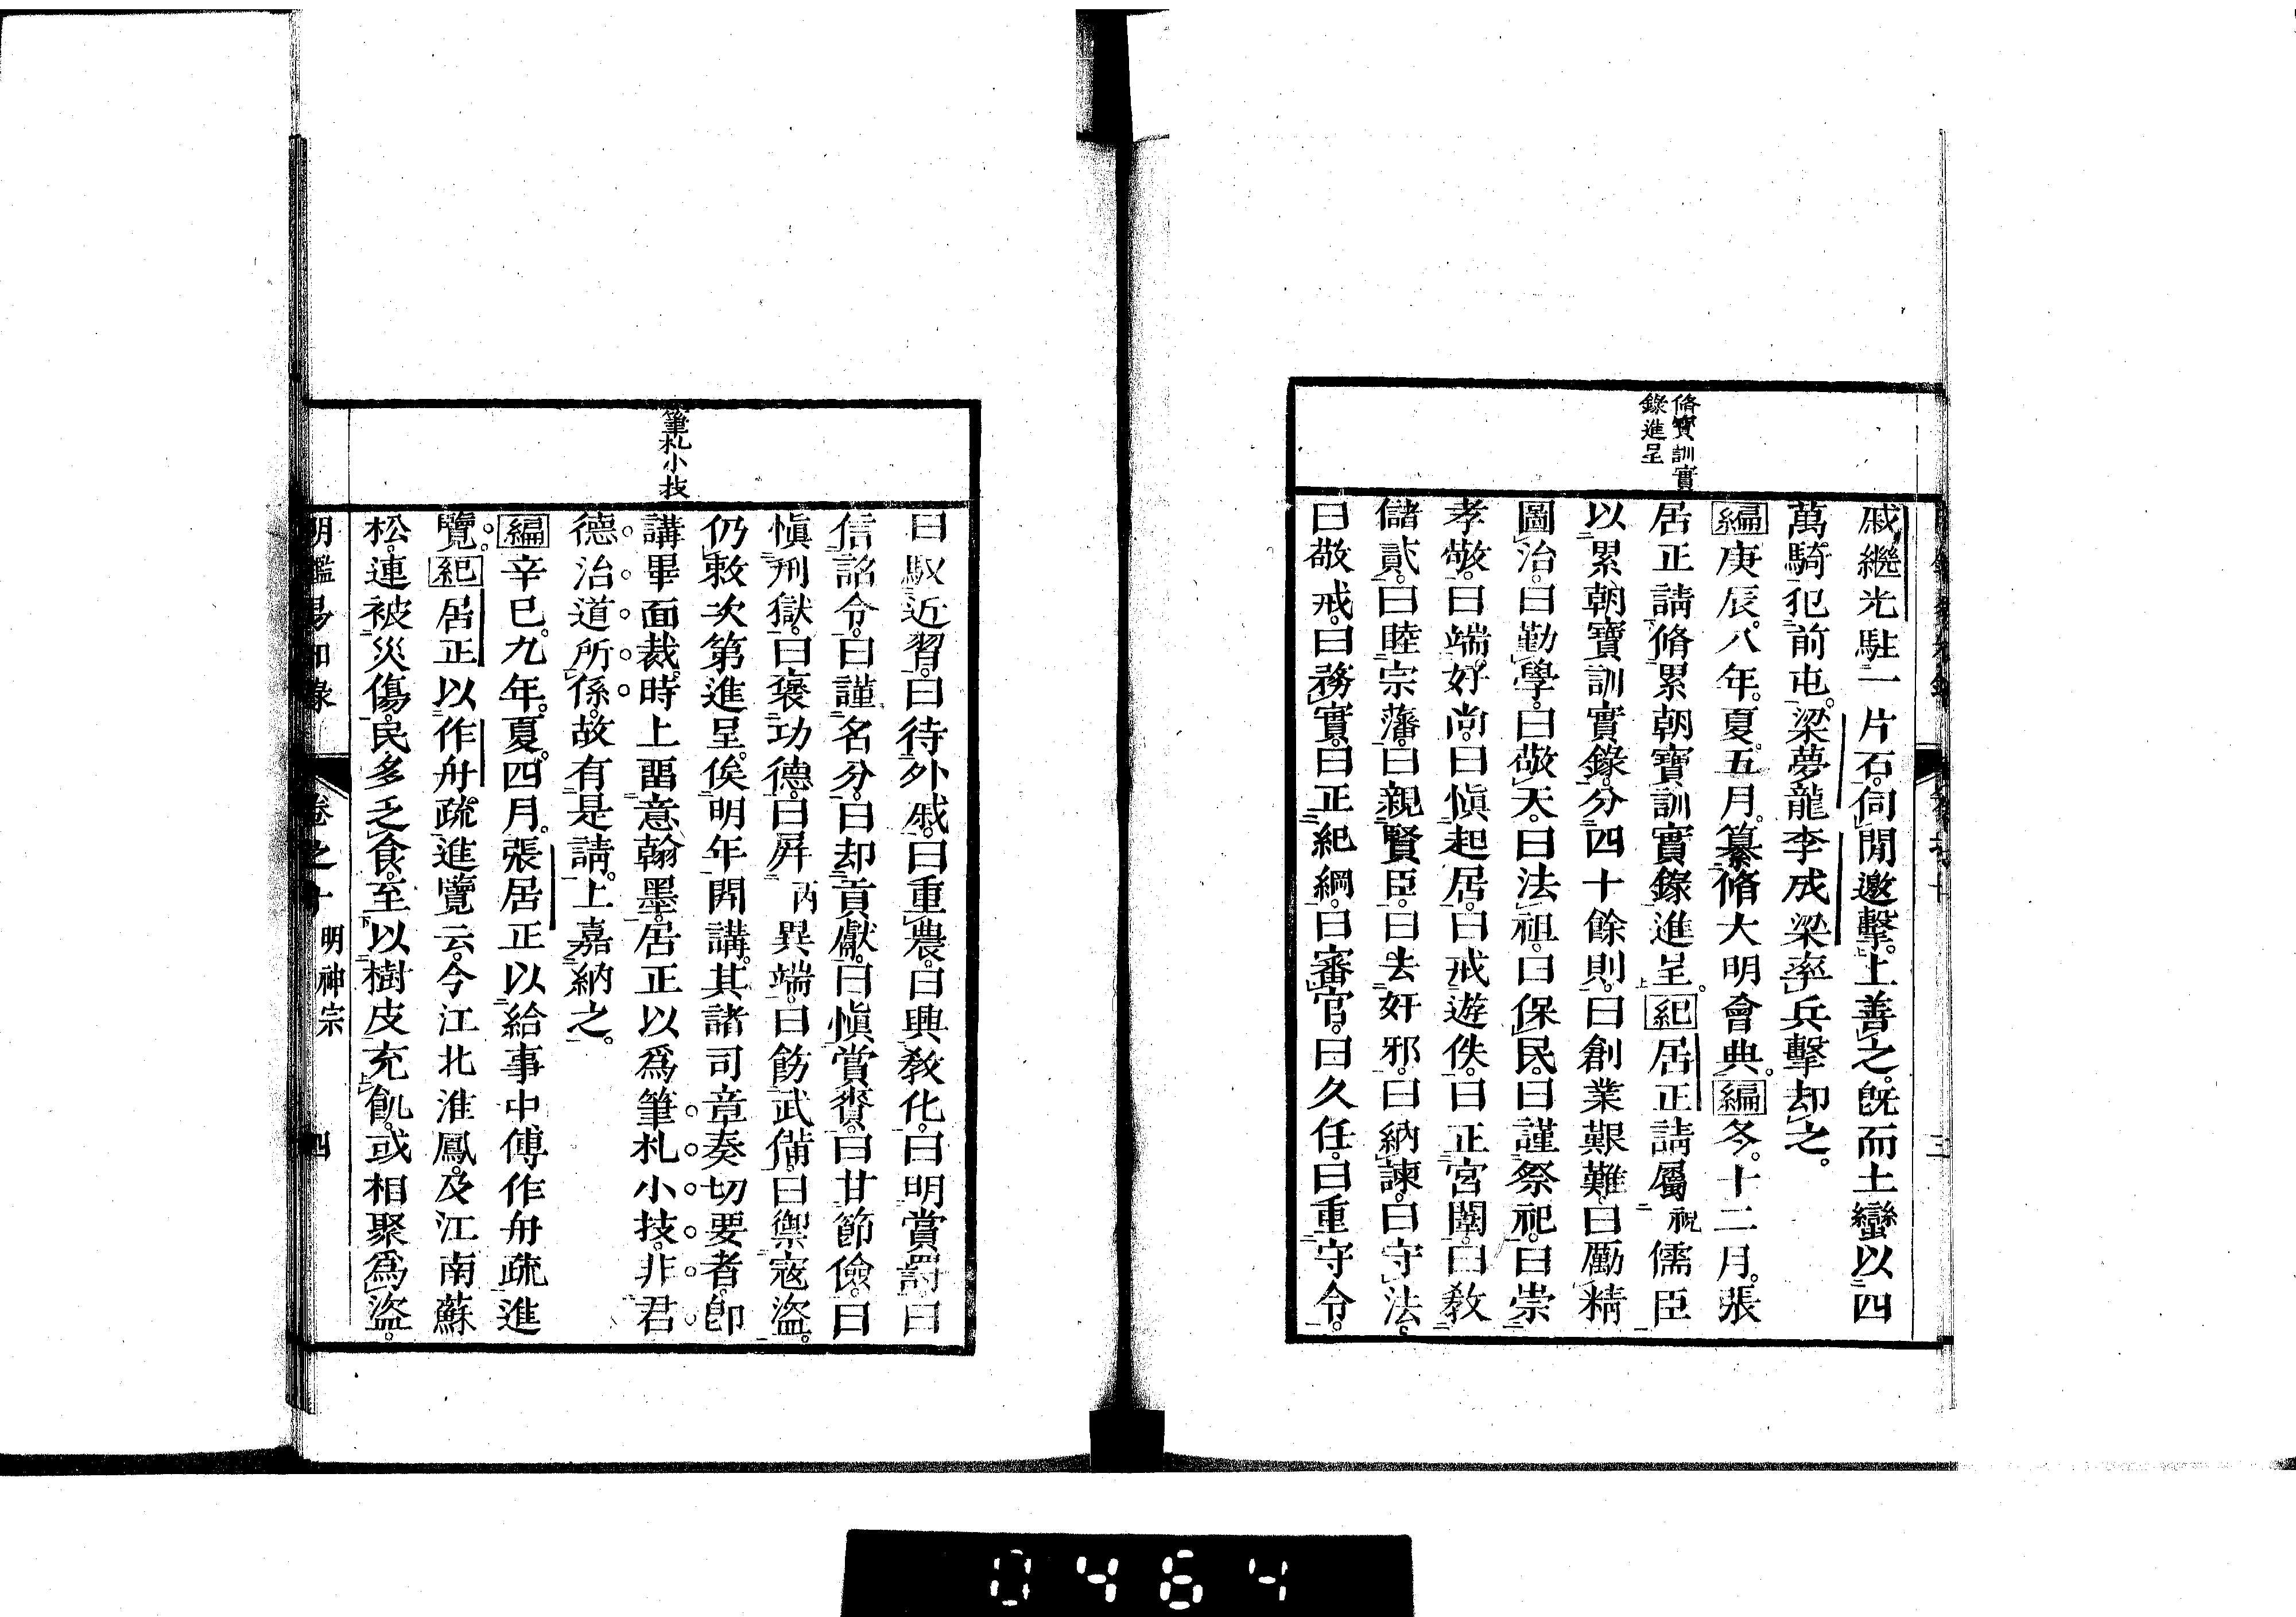 脩寶訓實
錄進呈
戚繼光駐一片石。伺閒邀擊。上善之。旣而土蠻以四
萬騎犯前屯。梁夢龍李成梁率兵擊却之。
編庚辰。八年。夏。五月。纂脩大明會典。編冬。十二月。張
居正請脩累朝寶訓實錄進呈。紀居正請屬祝儒臣
以累朝寶訓實錄。分四十餘則。曰創業艱難。曰勵精
圖治。曰勤學。曰敬天。曰法祖。曰保民。曰謹祭祀。曰崇
孝敬。曰端好尚。曰愼起居。曰戒遊佚。曰正宮闈。曰敎
儲貳。曰睦宗藩。曰親賢臣。曰去奸邪。曰納諫。曰守法。
曰敬戒。曰務實。曰正紀綱。曰審官。曰久任。曰重守令。
筆札小技
曰馭近習。曰待外戚。曰重農。曰興敎化。曰明賞罰。曰
信詔令。曰謹名分。曰却貢獻。曰愼賞賚。曰甘節儉。曰
愼刑獄。曰褒功德。曰屛丙異端。曰飭武備。曰禦寇盜。
仍敕次第進呈。俟明年開講。其諸司章奏切要者。卽
講畢面裁。時上畱意翰墨。居正以爲筆札小技。非君
德治道所係。故有是請。上嘉納之。
編辛巳。九年。夏。四月。張居正以給事中傅作舟疏進
覽。紀居正以作舟疏。進覽云。今江北淮鳳。及江南蘇
松。連被災傷。民多乏食。至以樹皮充飢。或相聚爲盜。
明鑑易知錄 卷之十 明神宗 四
0464